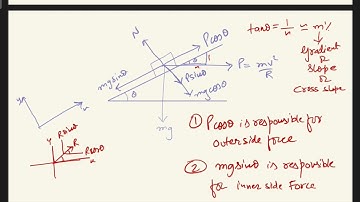 tanθ = 1/n ≈ m%
Gradient
or
Slope
or
Cross slope
N
Pcosθ
mgsinθ
θ
n
1
P = mv²/R
Psinθ
mgcosθ
θ
mg
y
x
y
Rsinθ
R
Rcosθ
x
① Pcosθ is responsible for
outerside force
② mgsinθ is responsible
for innerside Force